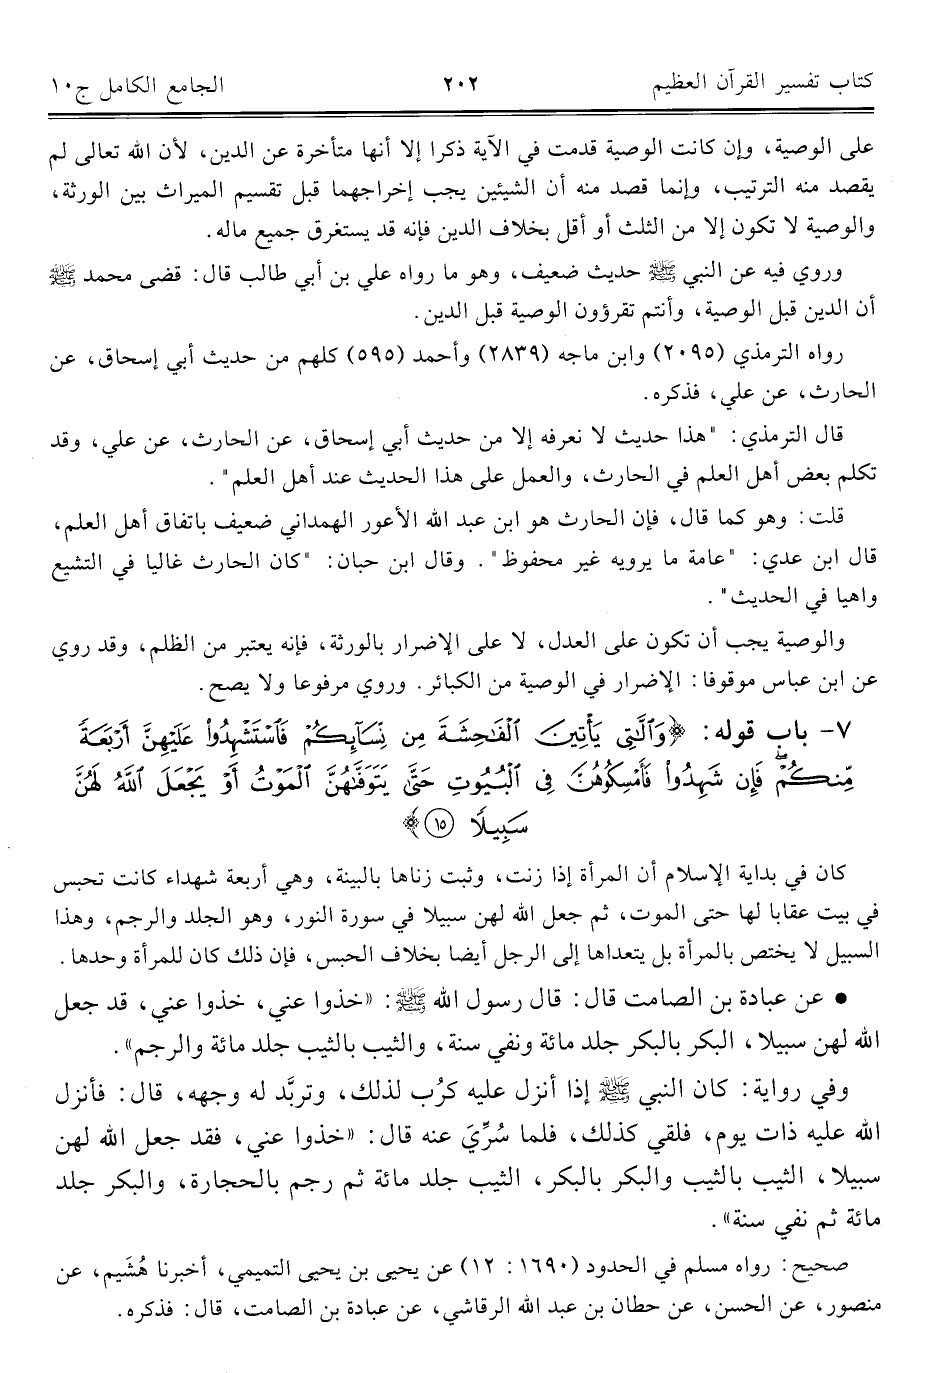 كتاب تفسير القرآن العظيم ٢٠٢ الجامع الكامل ج١٠
على الوصية، وإن كانت الوصية قدمت في الآية ذكرا إلا أنها متأخرة عن الدين، لأن الله تعالى لم
يقصد منه الترتيب، وإنما قصد منه أن الشيئين يجب إخراجهما قبل تقسيم الميراث بين الورثة،
والوصية لا تكون إلا من الثلث أو أقل بخلاف الدين فإنه قد يستغرق جميع ماله.
وروي فيه عن النبي ﷺ حديث ضعيف، وهو ما رواه علي بن أبي طالب قال: قضى محمد ﷺ
أن الدين قبل الوصية، وأنتم تقرؤون الوصية قبل الدين.
رواه الترمذي (٢٠٩٥) وابن ماجه (٢٨٣٩) وأحمد (٥٩٥) كلهم من حديث أبي إسحاق، عن
الحارث، عن علي، فذكره.
قال الترمذي: "هذا حديث لا نعرفه إلا من حديث أبي إسحاق، عن الحارث، عن علي، وقد
تكلم بعض أهل العلم في الحارث، والعمل على هذا الحديث عند أهل العلم".
قلت: وهو كما قال، فإن الحارث هو ابن عبد الله الأعور الهمداني ضعيف باتفاق أهل العلم،
قال ابن عدي: "عامة ما يرويه غير محفوظ". وقال ابن حبان: "كان الحارث غاليا في التشيع
واهيا في الحديث".
والوصية يجب أن تكون على العدل، لا على الإضرار بالورثة، فإنه يعتبر من الظلم، وقد روي
عن ابن عباس موقوفا: الإضرار في الوصية من الكبائر. وروي مرفوعا ولا يصح.
٧- باب قوله: ﴿وَٱلَّٰتِى يَأْتِينَ ٱلْفَٰحِشَةَ مِن نِّسَآئِكُمْ فَٱسْتَشْهِدُوا۟ عَلَيْهِنَّ أَرْبَعَةً
مِّنكُمْ ۖ فَإِن شَهِدُوا۟ فَأَمْسِكُوهُنَّ فِى ٱلْبُيُوتِ حَتَّىٰ يَتَوَفَّىٰهُنَّ ٱلْمَوْتُ أَوْ يَجْعَلَ ٱللَّهُ لَهُنَّ
سَبِيلًا ١٥﴾
كان في بداية الإسلام أن المرأة إذا زنت، وثبت زناها بالبينة، وهي أربعة شهداء كانت تحبس
في بيت عقابا لها حتى الموت، ثم جعل الله لهن سبيلا في سورة النور، وهو الجلد والرجم، وهذا
السبيل لا يختص بالمرأة بل يتعداها إلى الرجل أيضا بخلاف الحبس، فإن ذلك كان للمرأة وحدها.
• عن عبادة بن الصامت قال: قال رسول الله ﷺ: «خذوا عني، خذوا عني، قد جعل
الله لهن سبيلا، البكر بالبكر جلد مائة ونفي سنة، والثيب بالثيب جلد مائة والرجم».
وفي رواية: كان النبي ﷺ إذا أنزل عليه كرُب لذلك، وتربَّد له وجهه، قال: فأنزل
الله عليه ذات يوم، فلقي كذلك، فلما سُرِّيَ عنه قال: «خذوا عني، فقد جعل الله لهن
سبيلا، الثيب بالثيب والبكر بالبكر، الثيب جلد مائة ثم رجم بالحجارة، والبكر جلد
مائة ثم نفي سنة».
صحيح: رواه مسلم في الحدود (١٦٩٠: ١٢) عن يحيى بن يحيى التميمي، أخبرنا هُشَيم، عن
منصور، عن الحسن، عن حطان بن عبد الله الرقاشي، عن عبادة بن الصامت، قال: فذكره.